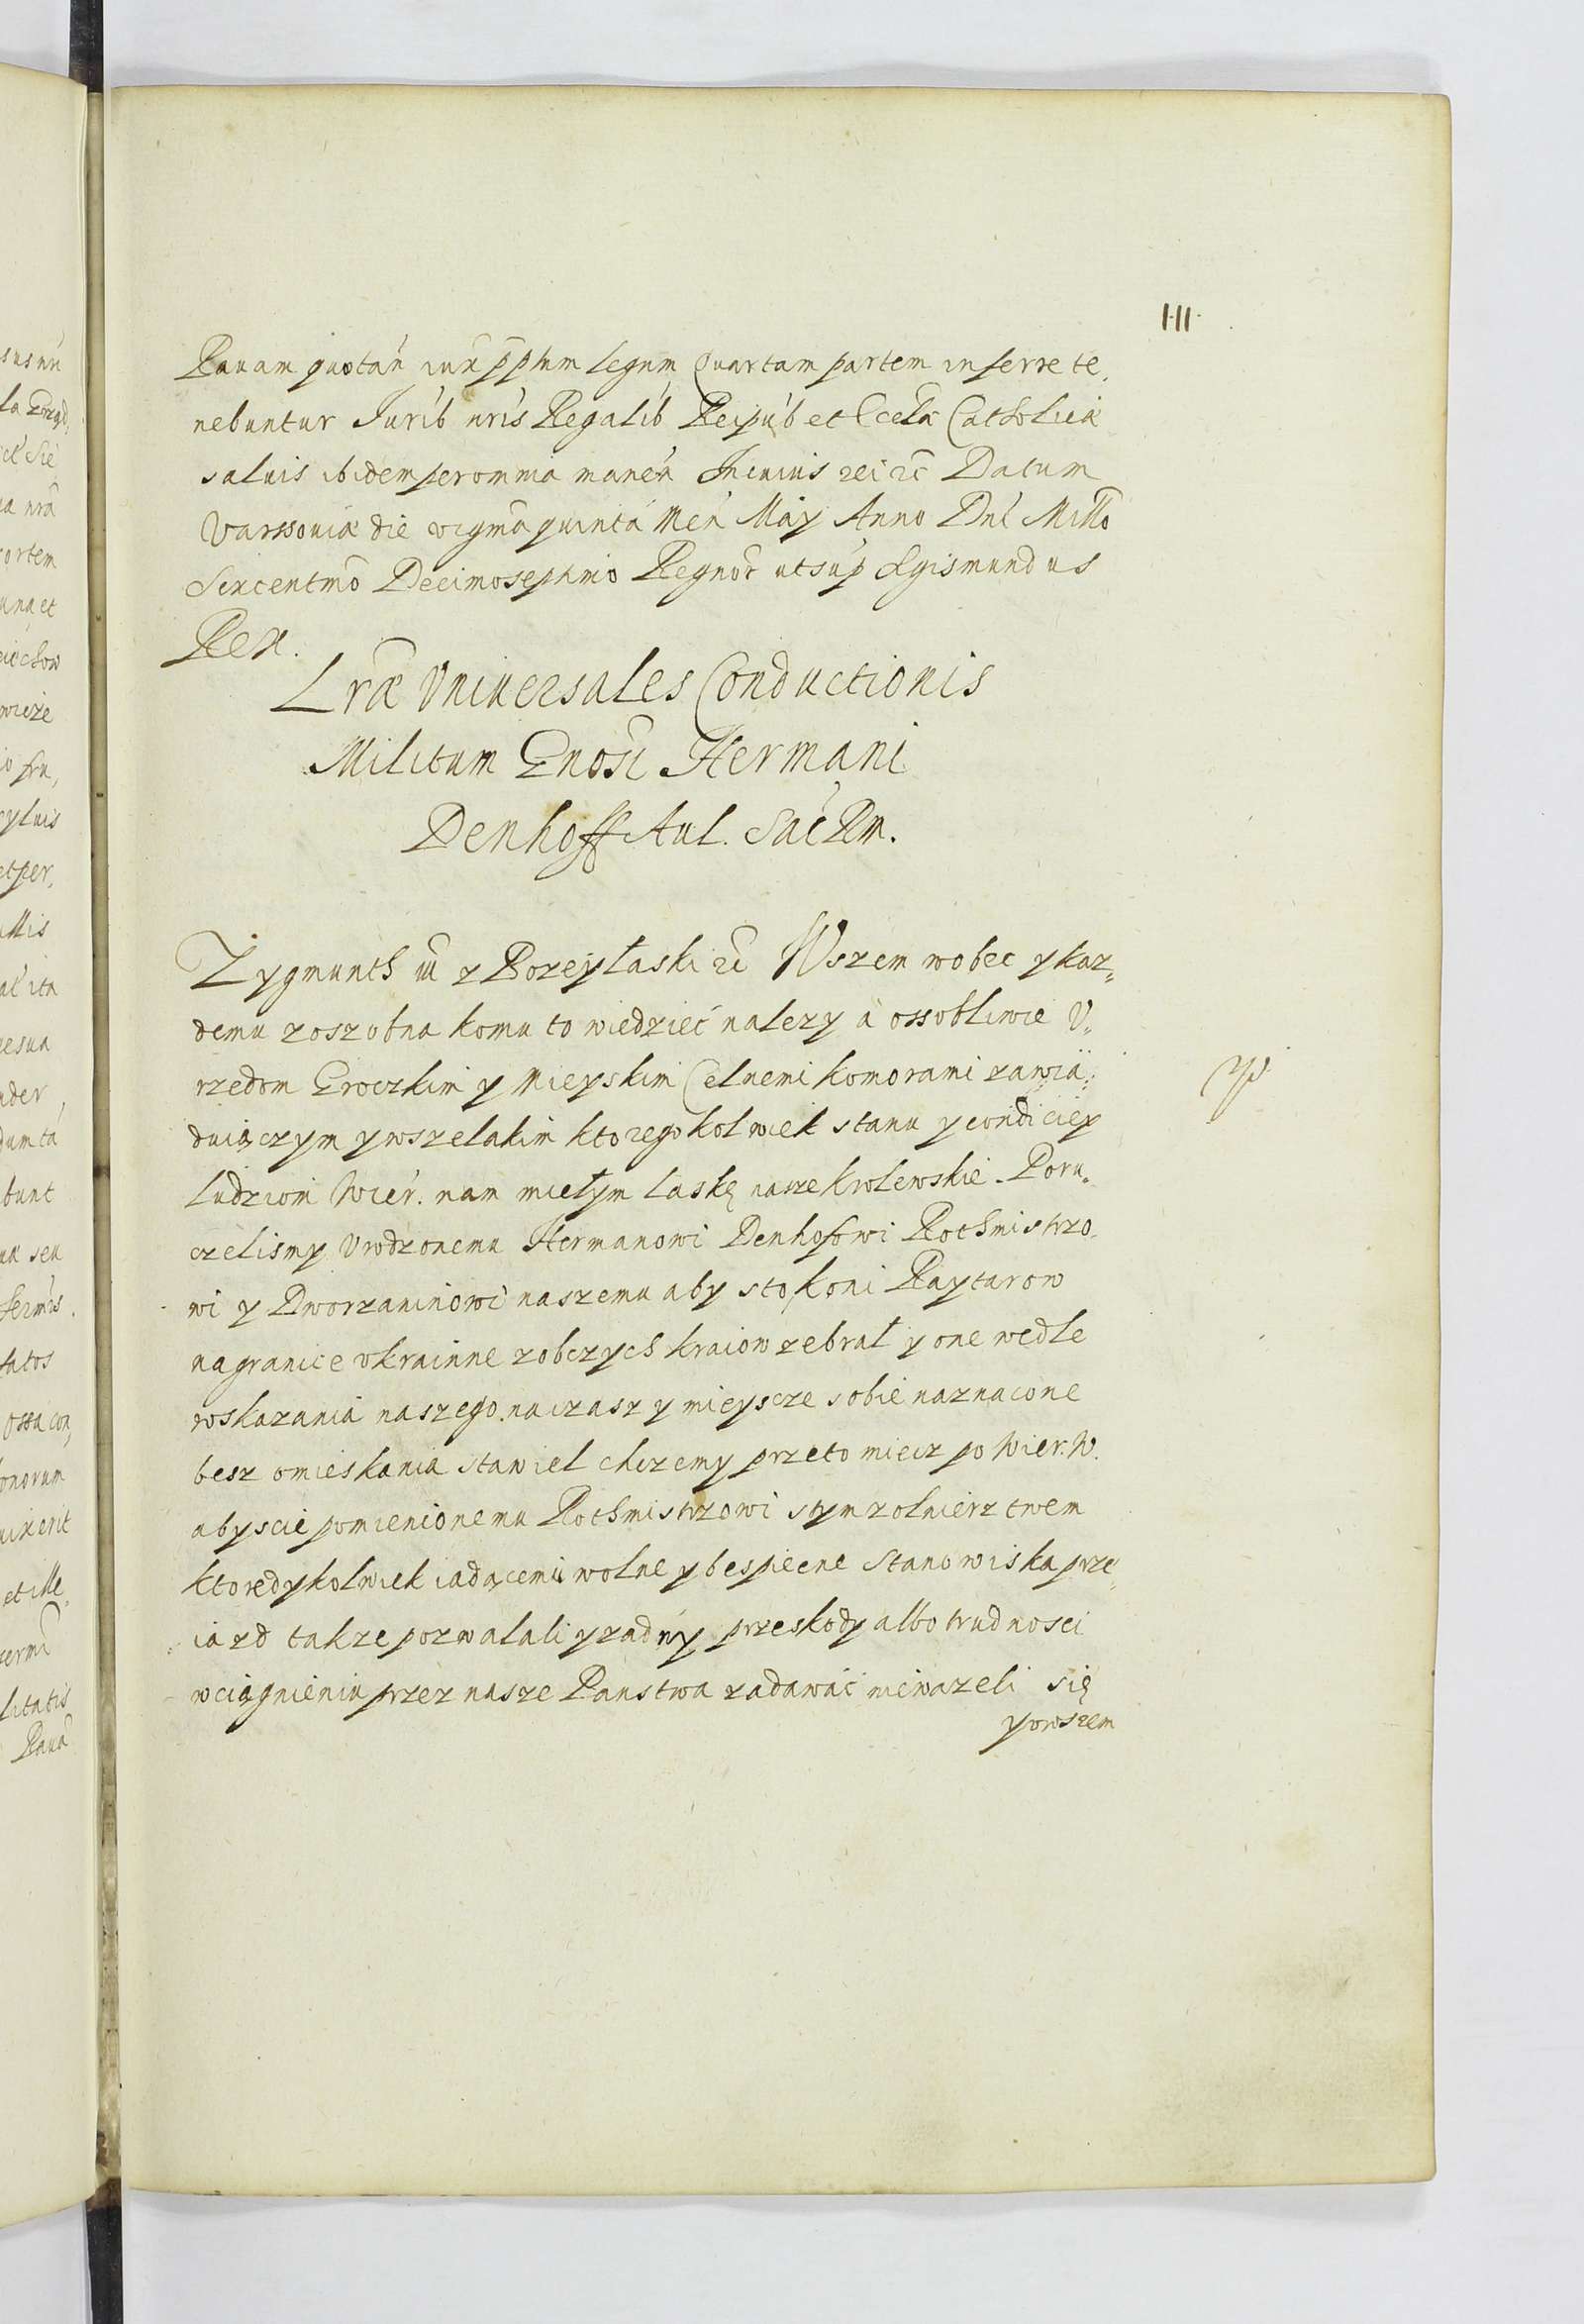 111.
Ravam quotan iux pphum legum Quartam partem inferre te,
nebuntur Jurib nris Regalib Reipub et Eccla Catholica
salvis ibidem per omnia manen In cuius rei rc Datum
Varssovia die vigma quinta Men May Anno Dni Millo
Sexcentmo Decimoseptimo Regnor ut sup Sigismundus
Rex.
Lræ Universales Conductionis
Militum Gnosi Hermani
Denhoff Aul. Sac Rm.
Zygmunth iii z Bozey łaski rc Wszem wobec y kaz„
demu zoszobna komu to wiedzieć nalezy a ossobliwie V„
rzędom Groczkim y Mieyskim Celnemi komorami zawia„
duiączym y wszelakim ktoregokolwiek stanu y condiciey
ludziom Wier. nam miełym laskę nasze krolewskie. Poru„
czelismy Vrodzonemu Hermanowi Denhofowi Rothmistrzo„
wi y Dworzaninowi naszemu aby sto koni Raytarow
na granice vkrainne z obczych kraiow zebrał y one wedle
wskazania naszego na czasz y mieyscze sobie naznacone
besz omieskania stawiel chczemy przeto miecz po Wier. W.
abyscie pomienionemu Rothmistrzowi s tym zolnierztwem
ktoredykolwiek iadącemu wolne y bespiecne Stanowiska prze„
iazd takze pozwalali y zadny przeskody albo trudnosci
w ciągnieniu przez nasze Panstwa zadawać niewazeli się
y owszem